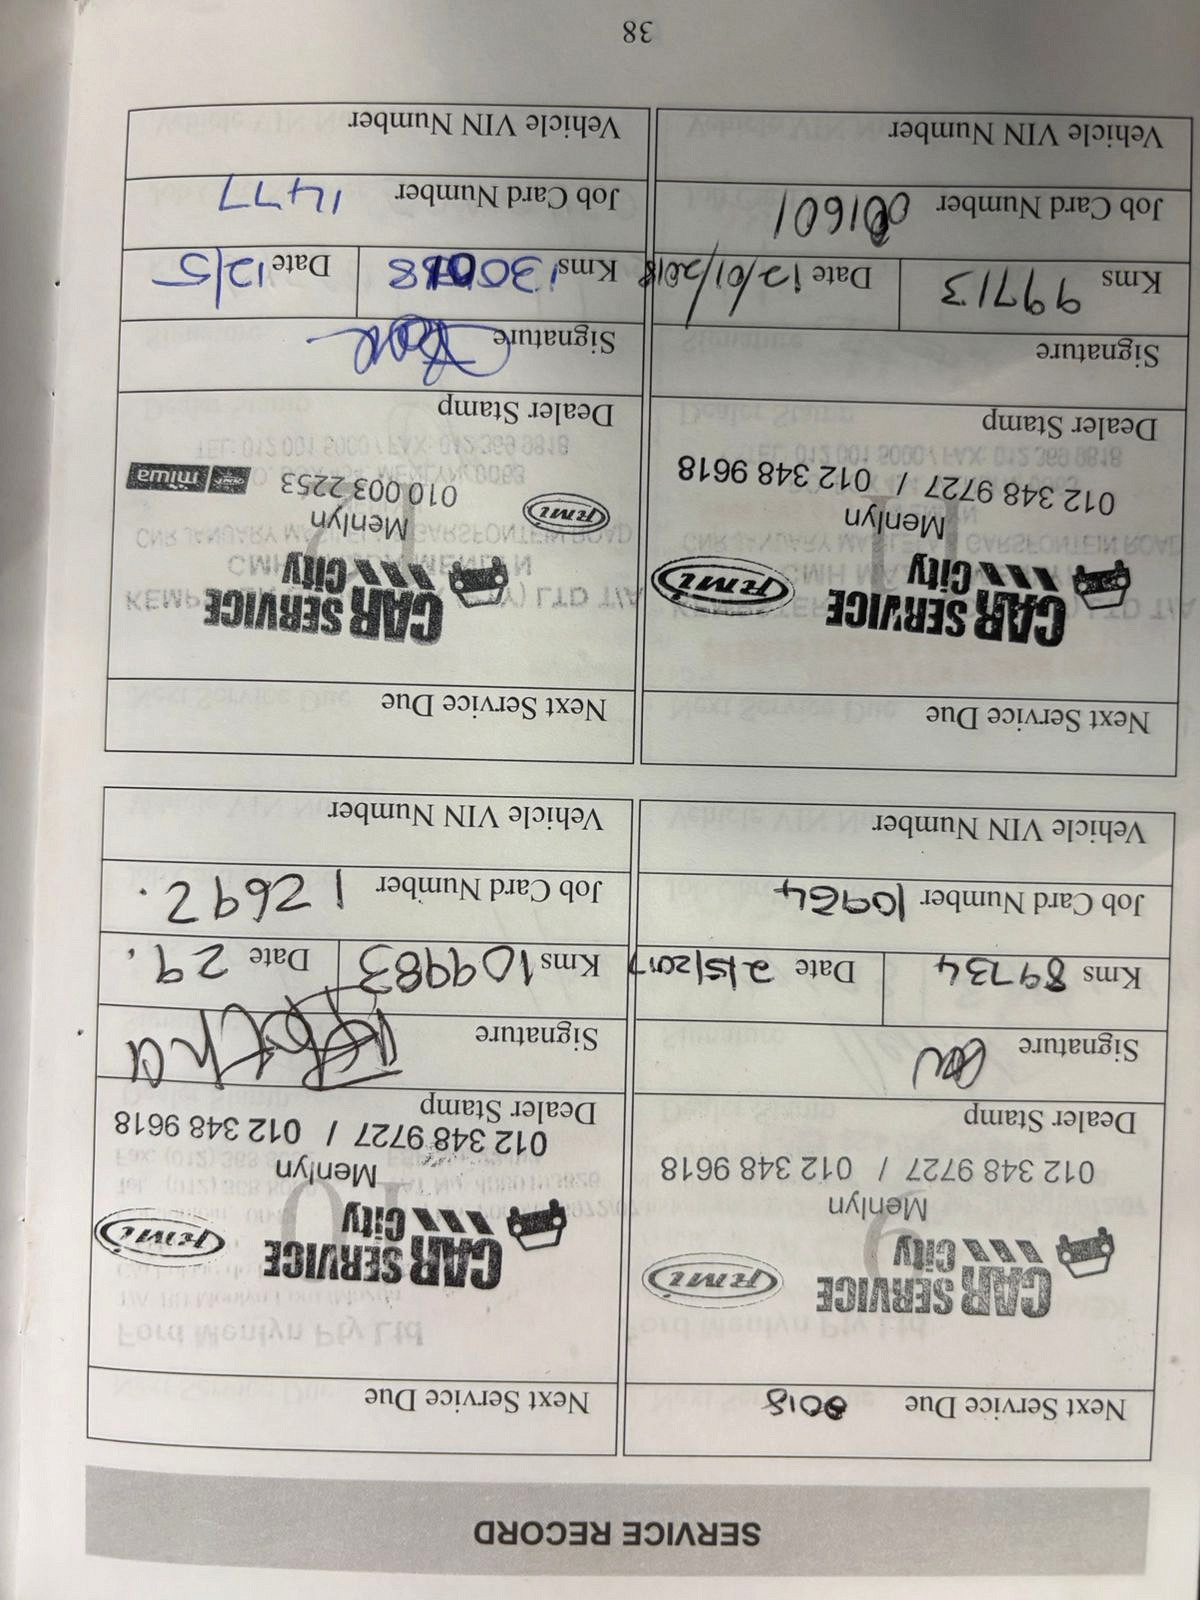 SERVICE RECORD
Next Service Due
9
CAR SERVICE
City
rmi
Menlyn
012 348 9727 / 012 348 9618
Dealer Stamp
Signature
Kms 89734 Date 2/5/2017
Job Card Number 10964
Vehicle VIN Number
Next Service Due
10
CAR SERVICE
City
rmi
Menlyn
012 348 9727 / 012 348 9618
Dealer Stamp
Signature
Kms 109983 Date 29.
Job Card Number 12692.
Vehicle VIN Number
Next Service Due
11
CAR SERVICE
City
rmi
Menlyn
012 348 9727 / 012 348 9618
Dealer Stamp
Signature
Kms 99713 Date 12/01/2018
Job Card Number 001601
Vehicle VIN Number
Next Service Due
12
CAR SERVICE
City
Menlyn
rmi
010 003 2253
miwa
Dealer Stamp
Signature
Kms Date 12/5
Job Card Number 1477
Vehicle VIN Number
38